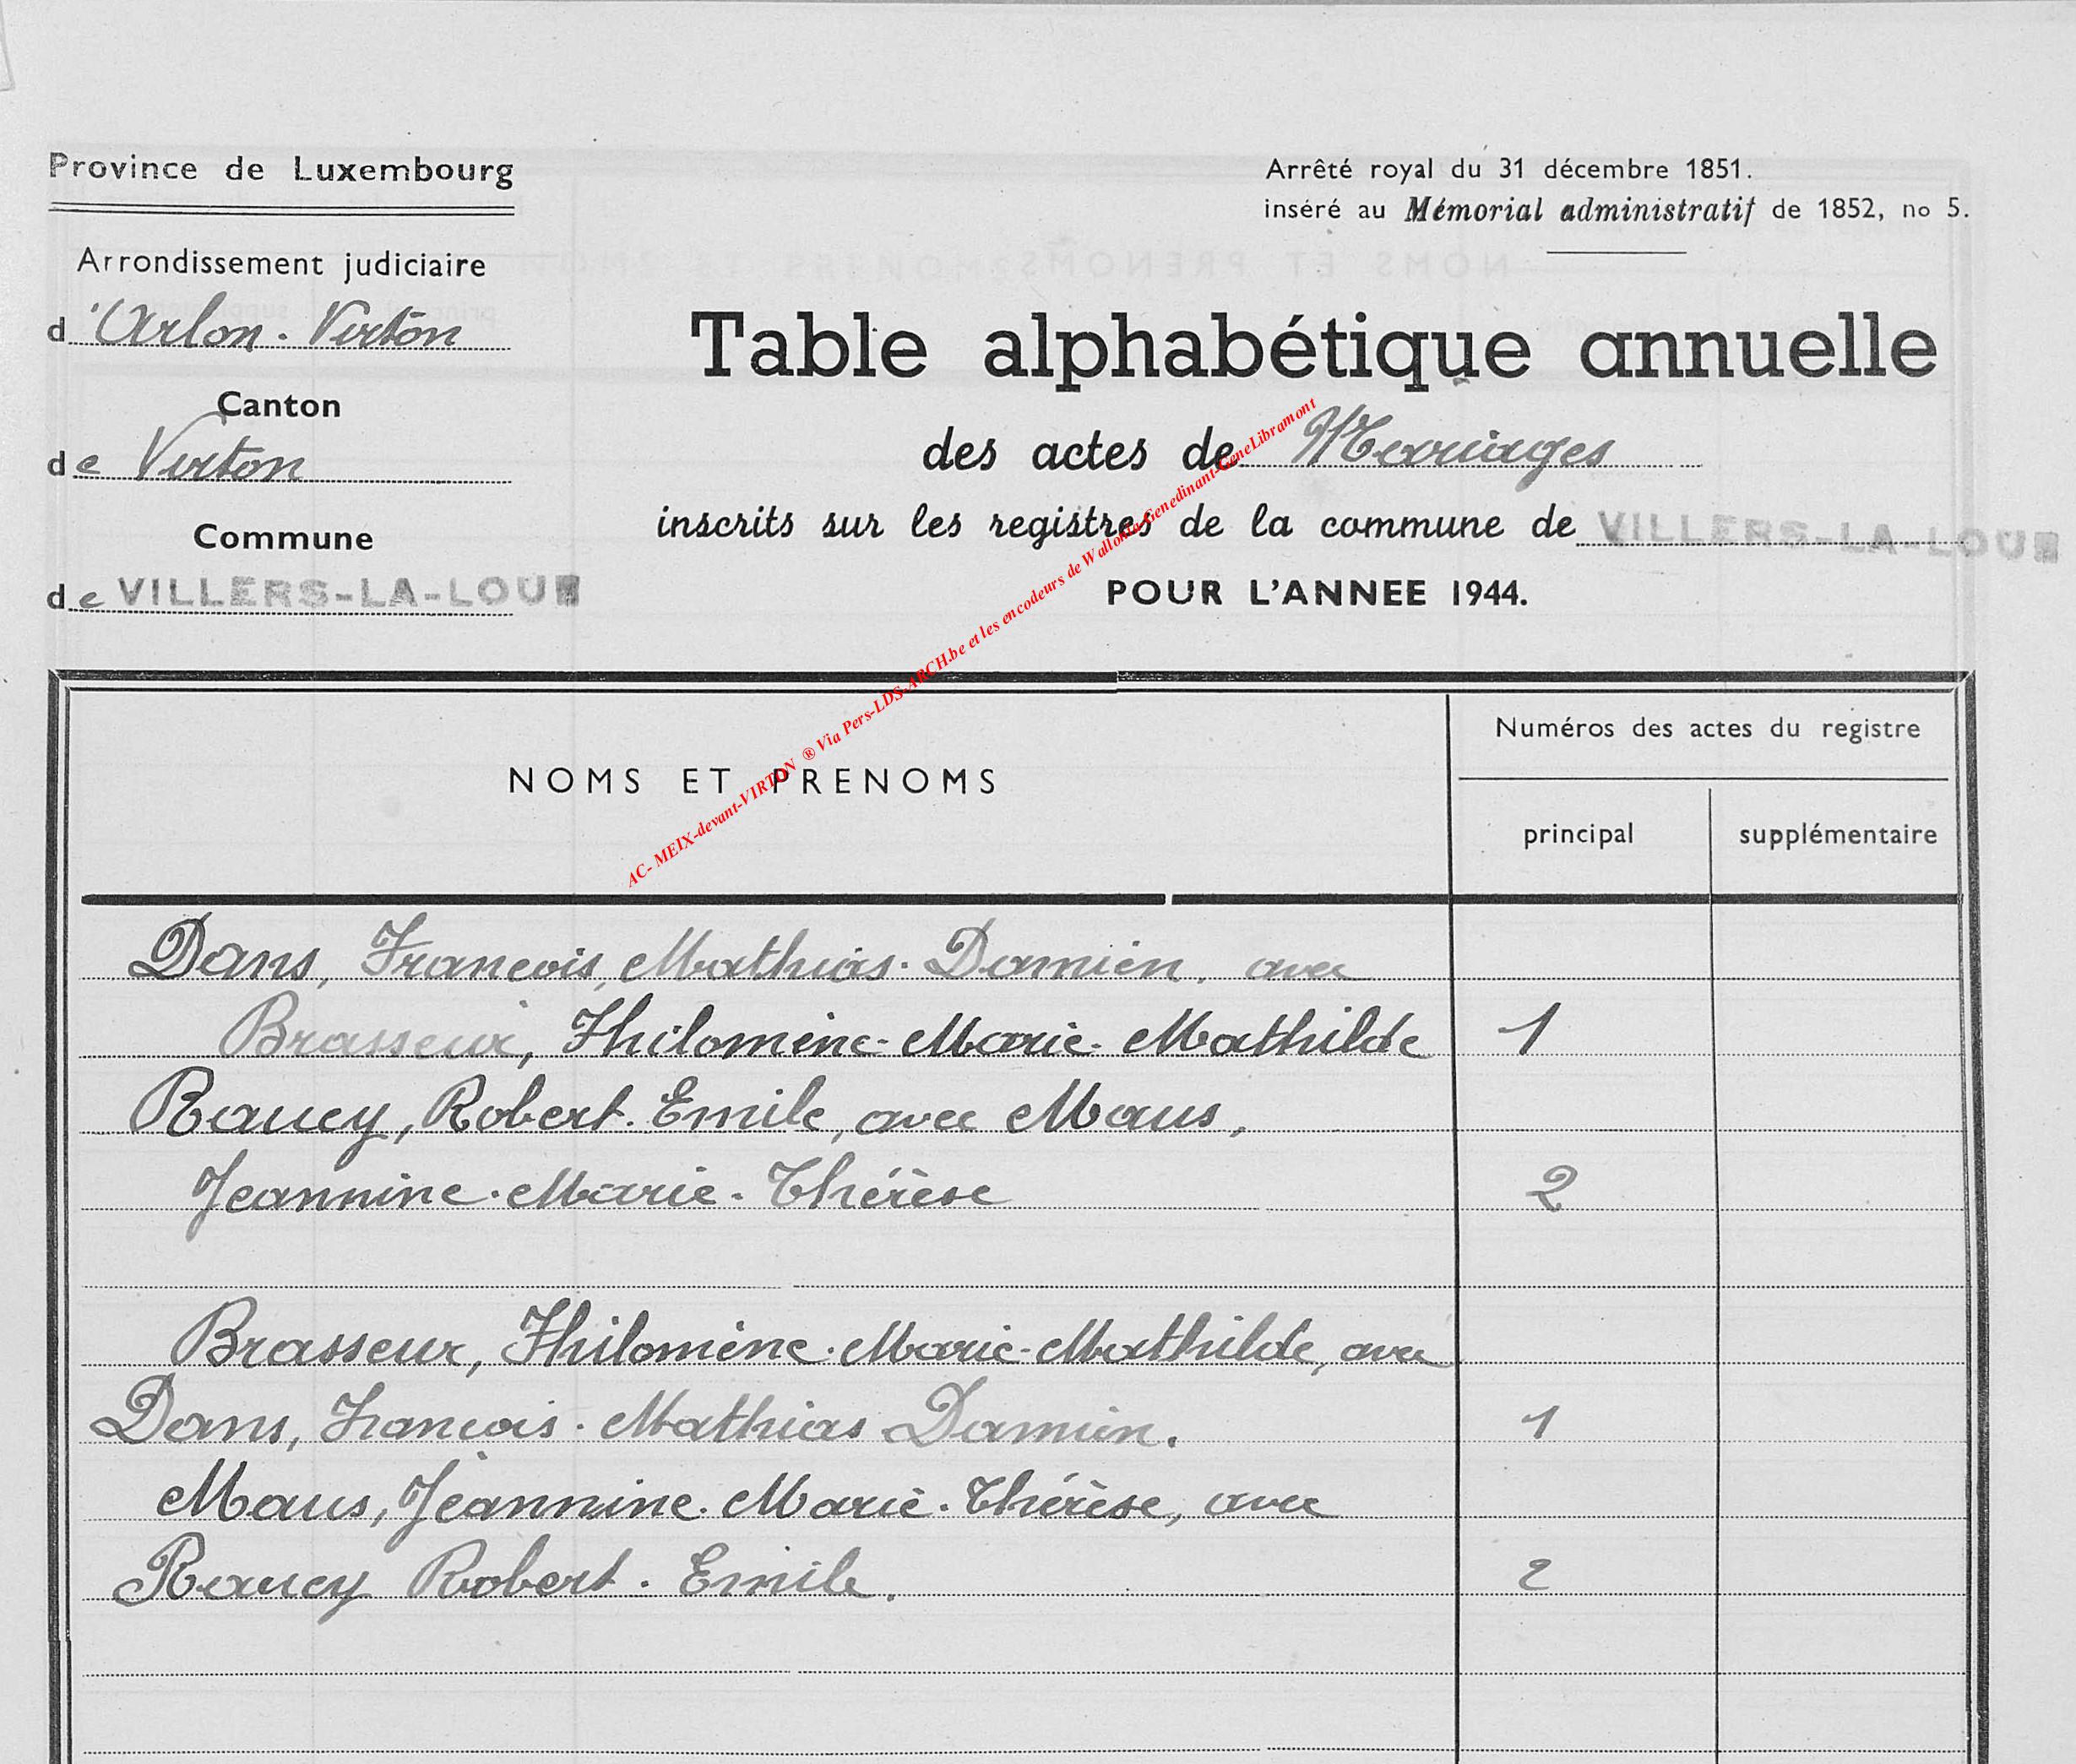 Province de Luxembourg
Arrêté royal du 31 décembre 1851.
inséré au Mémorial administratif de 1852, no 5.
Arrondissement judiciaire
d'Arlon - Virton
Canton
de Virton
Commune
de VILLERS-LA-LOUE
Table alphabétique annuelle
des actes de Mariages
inscrits sur les registres de la commune de VILLERS-LA-LOUE
POUR L'ANNEE 1944.
AC- MEIX-devant-VIRTON ® Via Pers-LDS-ARCH.be et les encodeurs de Wallonia-Genedinant-GeneLibramont
NOMS ET PRENOMS
Numéros des actes du registre
principal
supplémentaire
Dans, François, Mathias - Damien, avec
Brasseur, Philomène - Marie - Mathilde 1
Raucy, Robert - Emile, avec Maus,
Jeannine - Marie - Thérèse 2
Brasseur, Philomène - Marie - Mathilde, avec
Dans, François - Mathias Damien. 1
Maus, Jeannine - Marie - Thérèse, avec
Raucy Robert - Emile. 2